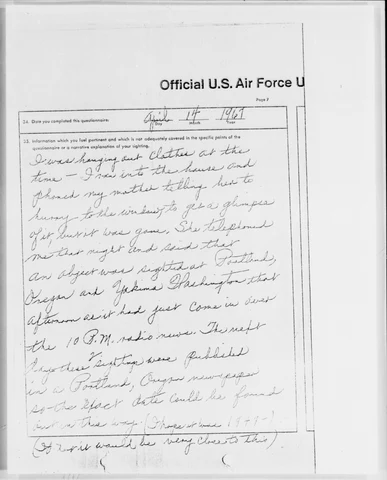 Official U.S. Air Force U
Page 2
24. Date you completed this questionnaire:
April 14 1967
Day Month Year
25. Information which you feel pertinent and which is not adequately covered in the specific points of the
questionnaire or a narrative explanation of your sighting.
I was hanging out clothes at the
time - I ran into the house and
phoned my mother telling her to
hurry to the window to get a glimpse
of it, but it was gone. She telephoned
me that night and said that
an object was sighted at Portland,
Oregon and Yakima Washington that
afternoon as it had just come in over
the 10 P.M. radio news. The next
days these sightings were published
in a Portland, Oregon newspaper
so the exact date could be found
out in this way. (I hope it was 1949-)
(If not it would be very close to this).